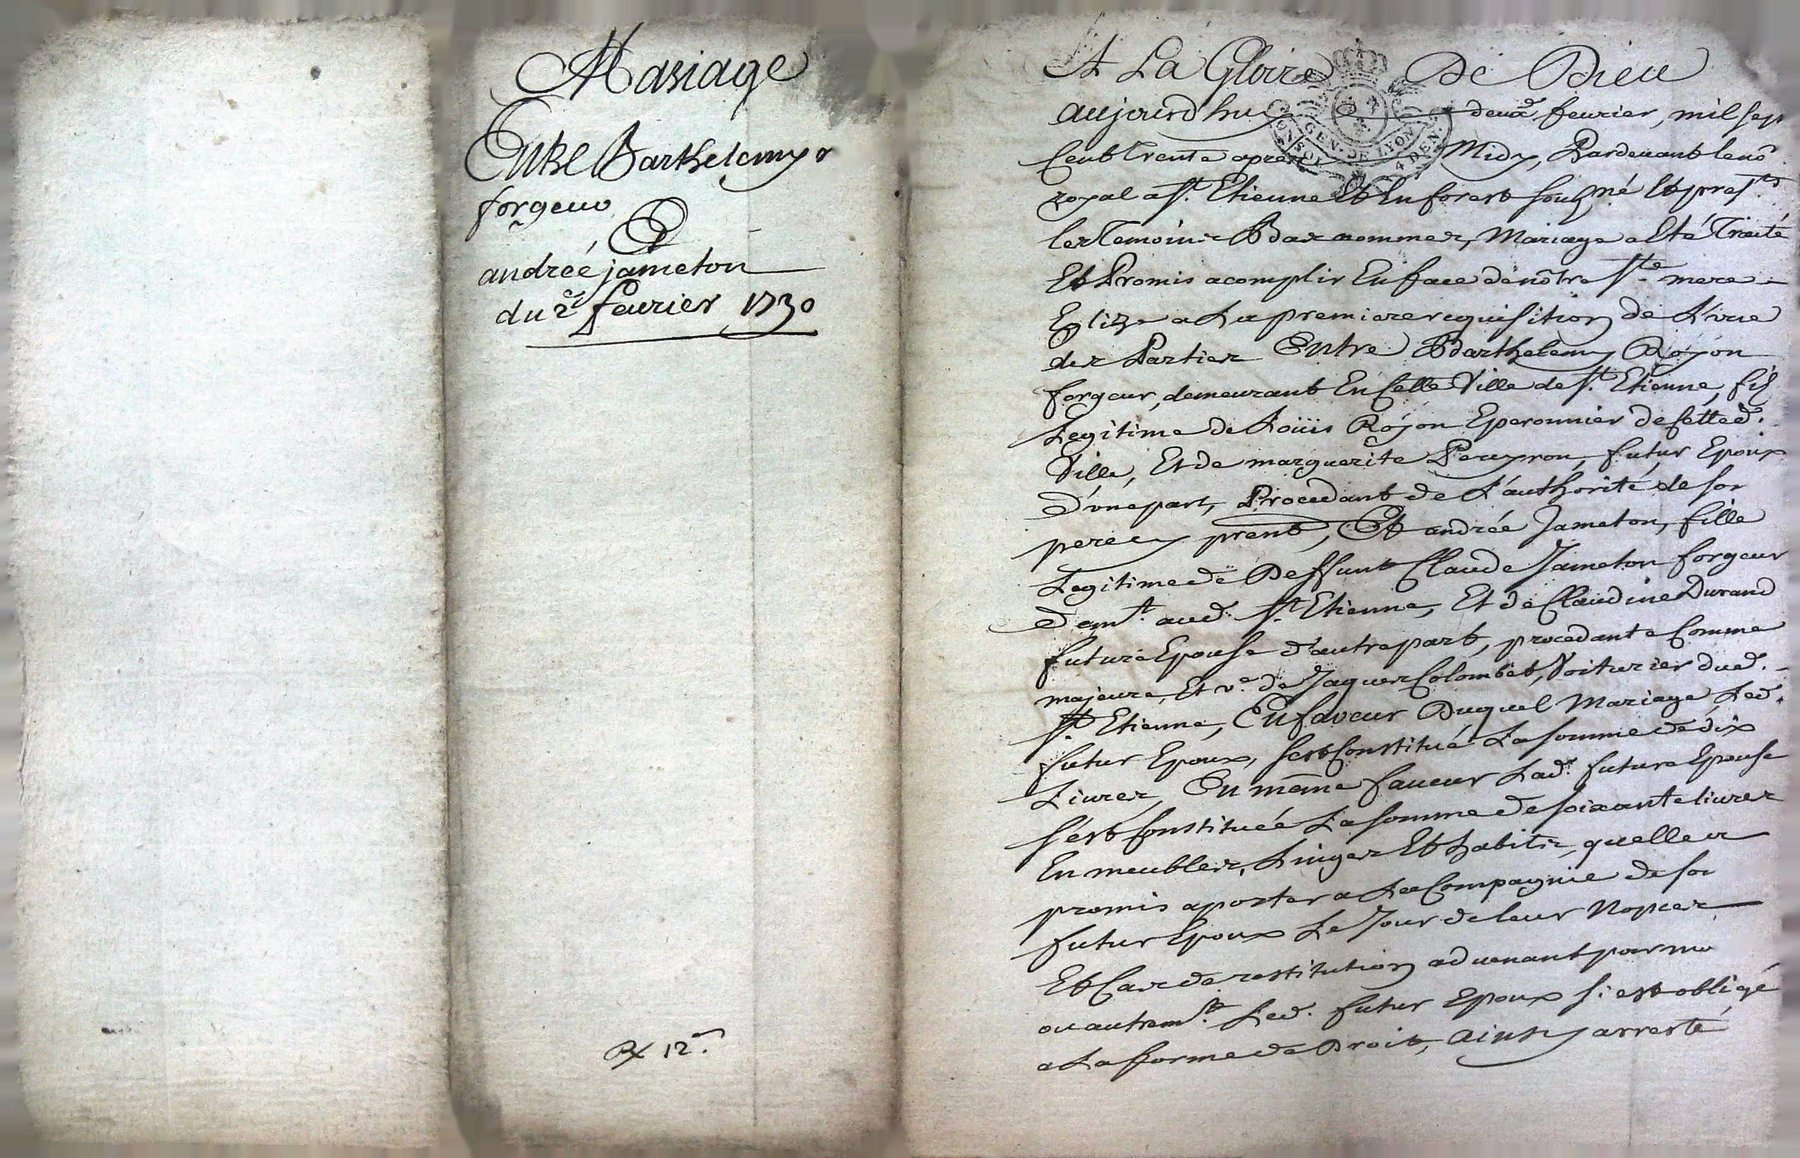 Mariage
Entre Barthelemy
forgeur
Et
andreé jameton
du 2e feurier 1730
R 12s
A La Gloire De Dieu
GEN. DE LYON
4 DEN.
aujourd huy deuxe feurier, mil sept
Cent Trente apres Midy, Pardeuant le nore
royal a St. Etienne Et En forest sousné Et presta
Les Temoins Bas nommez, Mariage a Eté Traité
Et Promis acomplir En face de nôtre Ste. mere
Eglize a La premiere requisition de L'vne
des Parties Entre Barthelemy Royon
forgeur, demeurant En Cette Ville de St. Etienne, fils
Legitime de Loüis Royon Eperonnier de Cetted.
Ville, Et de marguerite Peyron, futur Epoux
D'vne part, Procedant de L'authorité de son
pere cy prent, Et andrée Jameton, fille
Legitime de Deffunt Claude Jameton forgeur
demt. aud. St. Etienne, Et de Claudine Durand
future Epouse d'autre part, procedante Comme
majeure, Et ve. de Jaques Colombet, Voiturier dud.
St. Etienne, En faueur Duquel Mariage Led.
futur Epoux, sest Constitué La somme de dix
Liures, En même faueur Lad. future Epouse
s'est Constituée La somme de soixante liures
En meubles, Linges Et habits, quelle a
promis aporter a La Compagnie de son
futur Epoux Le Jour de leur Nopces
Et Cas de restitution aduenant par mo
ou autremt. Led. futur Epoux s'est obligé
a La forme de Droit, ainsy arresté